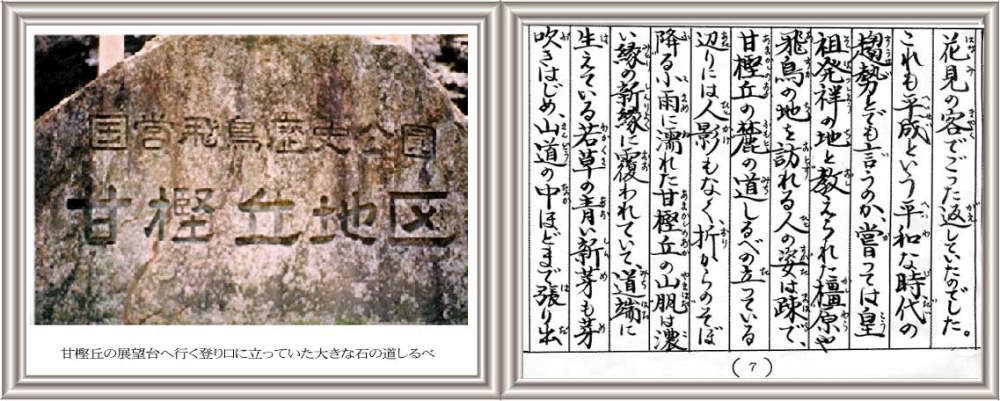 国営飛鳥歴史公園
甘樫丘地区
甘樫丘の展望台へ行く登り口に立っていた大きな石の道しるべ
花見の客でごった返していたのでした。
これも平成という平和な時代の
趨勢とでも言うのか、嘗っては皇
祖発祥の地と教えられた橿原や
飛鳥の地を訪れる人の姿は疎で、
甘樫丘の麓の道しるべの立っている
辺りには人影もなく、折からのそぼ
降る小雨に濡れた甘樫丘の山肌は濃
い緑の新緑に覆われていて、道端に
生えている若草の青い新芽も芽
吹きはじめ、山道の中ほどまで張り出
(7)